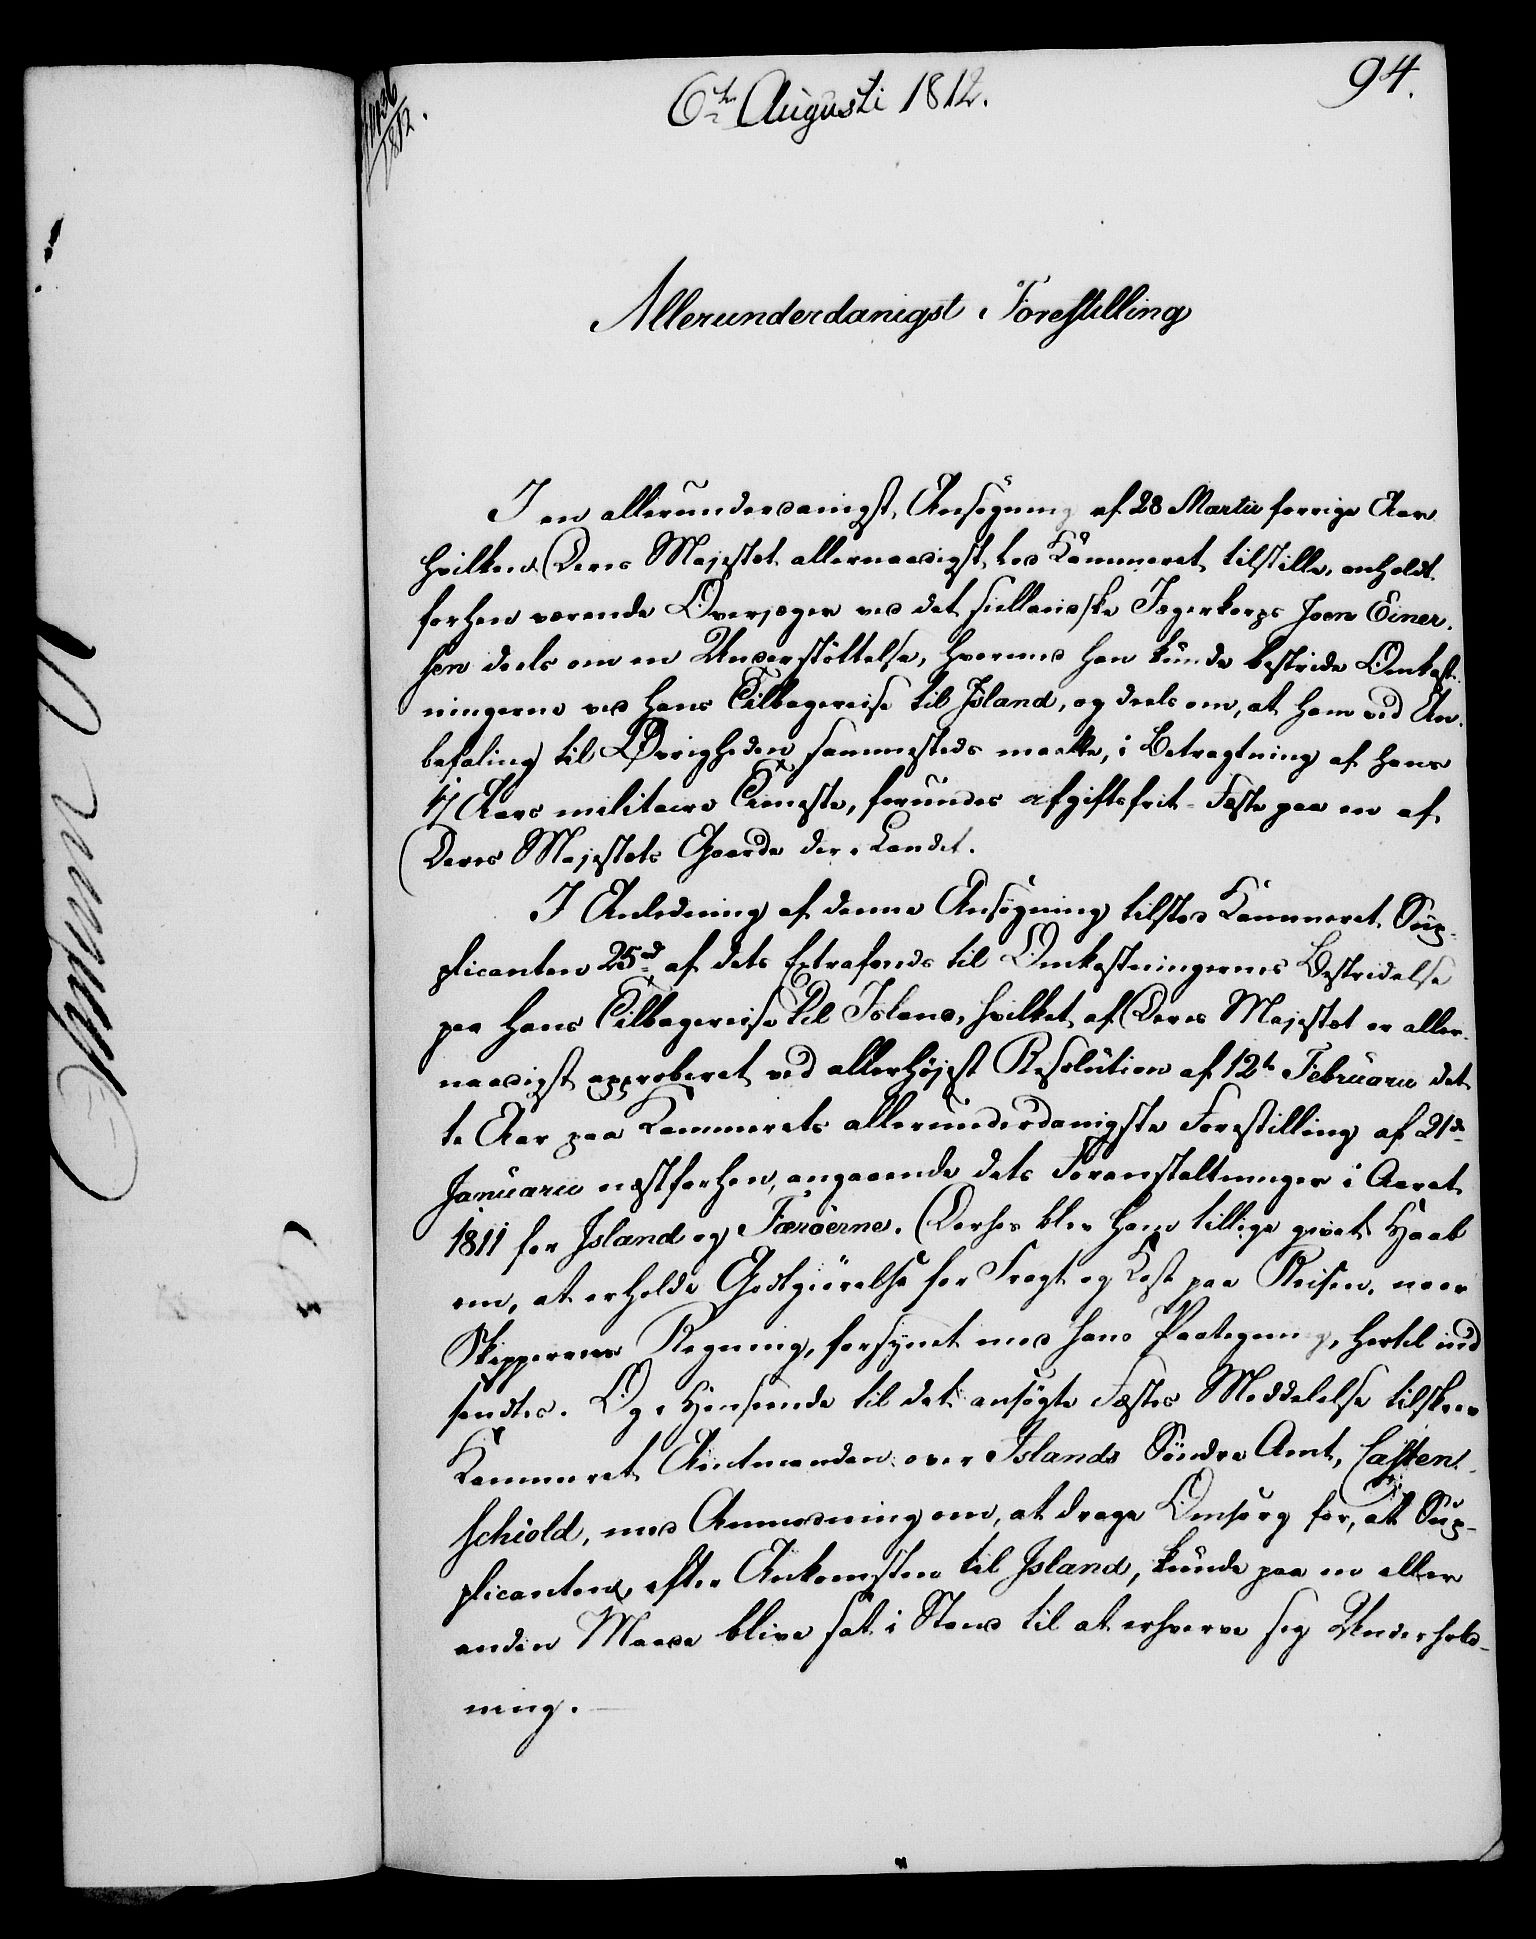 1436
1812.
6te Augusti 1812.
94.
Allerunderdanigst Forestilling
I en allerunderdanigst Ansøgning af 28 Martii forrige Aar
hvilken Deres Majestet allernaadigst lod Kammeret tilstille, anholdt
forhen værende Overjæger ved det siellandske Jægerkorps Joen Einer-
sen deels om en Understøttelse, hvormed han kunde bestride Omkost-
ningerne ved hans Tilbagereise til Jsland, og deels om, at ham ved An-
befaling til Øvrigheden sammesteds maatte, i Betragtning af hans
17 Aars militaire Tieneste, forundes afgiftsfrit Fæste paa en af
Deres Majestets Gaarde der i Landet.
I Anledning af denne Ansøgning tilstod Kammeret Sup-
plicanten 25rd af dets Extrafonds til Omkostningernes Bestridelse
paa hans Tilbagereise til Island, hvilket af Deres Majestet er aller-
naadigst approberet ved allerhøjest Resolution af 12te Februarii det-
te Aar paa Kammerets allerunderdanigste Forestilling af 21de
Januarii næstforhen, angaaende dets Foranstaltninger i Aaret
1811 for Jsland og Færøerne. Derhos blev ham tillige givet Haab
om, at erholde Godtgiørelse for Fragt og Kost paa Reisen, naar
Skipperens Regning, forsynet med hans Paategning, hertil ind
sendtes. Og i Henseende til det ansøgte Fæstes Meddelelse tilskrev
Kammeret Amtmanden over Islands Søndre Amt, Casten-
schiold, med Anmodning om, at drage Omsorg for, at Sup-
plicanten, efter Ankomsten til Jsland, kunde paa en eller
anden Maade blive sat i Stand til at erhverve sig Underhold-
ning.